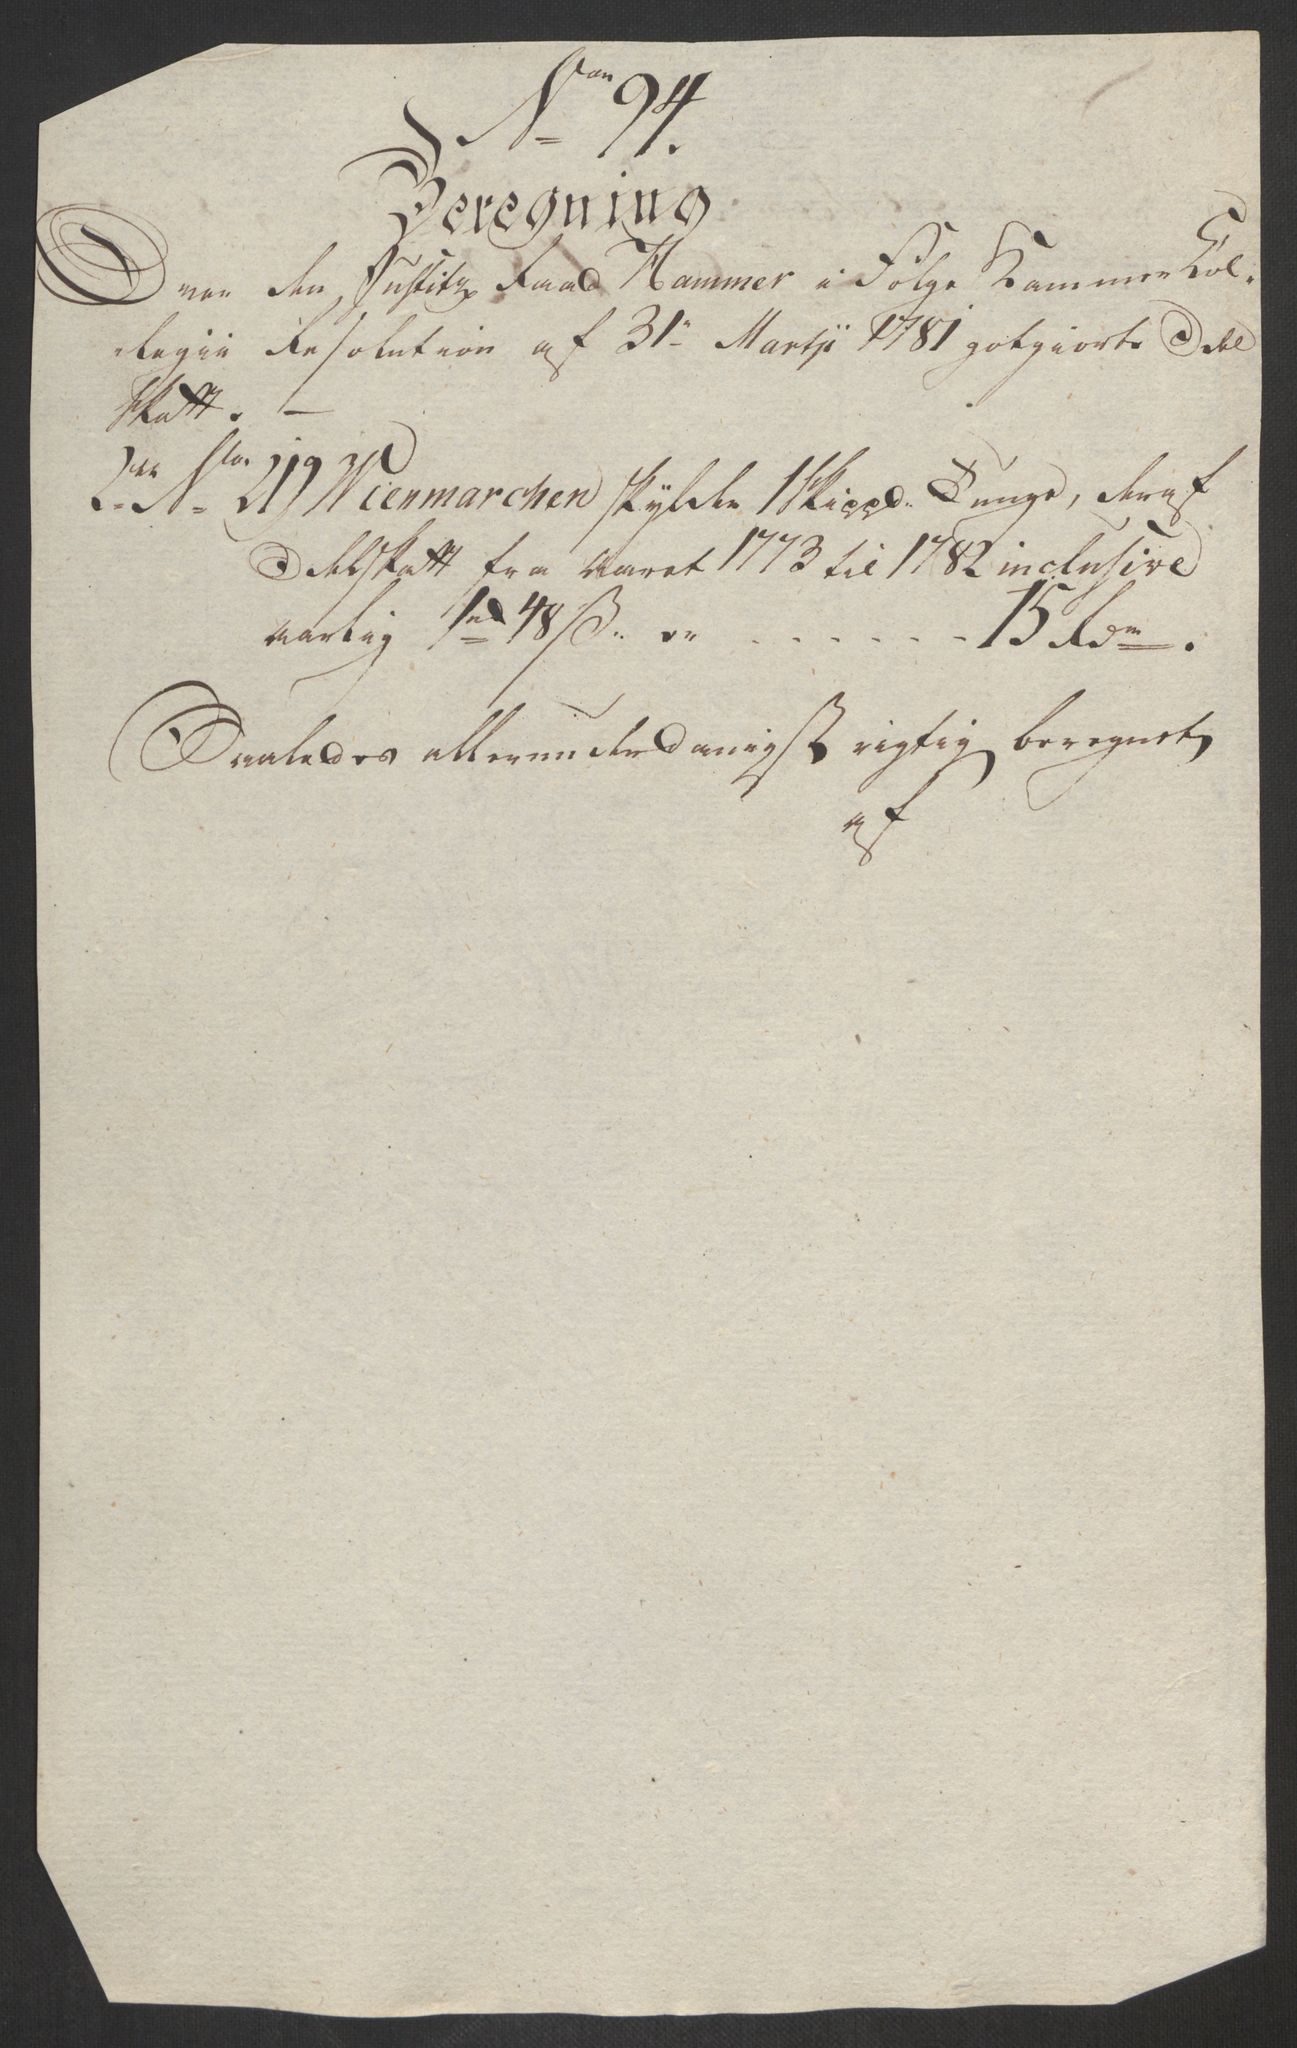 No 94.
Beregning
Over den Justitz Raad Hammer i Følge Kammer Col-
legii Resolution af 31te Martji 1781 gotgiorte Odel
skatt. —
No 219 Wienmarchen skylder 1 Skippd. Tunge, deraf
Odelskatt fra aaret 1773 til 1782 inclusive
aarlig 1rd 48 ß. er - - - - - - - 15 Rdr.
Saaledes allerunderdanigst rigtig beregnet
af